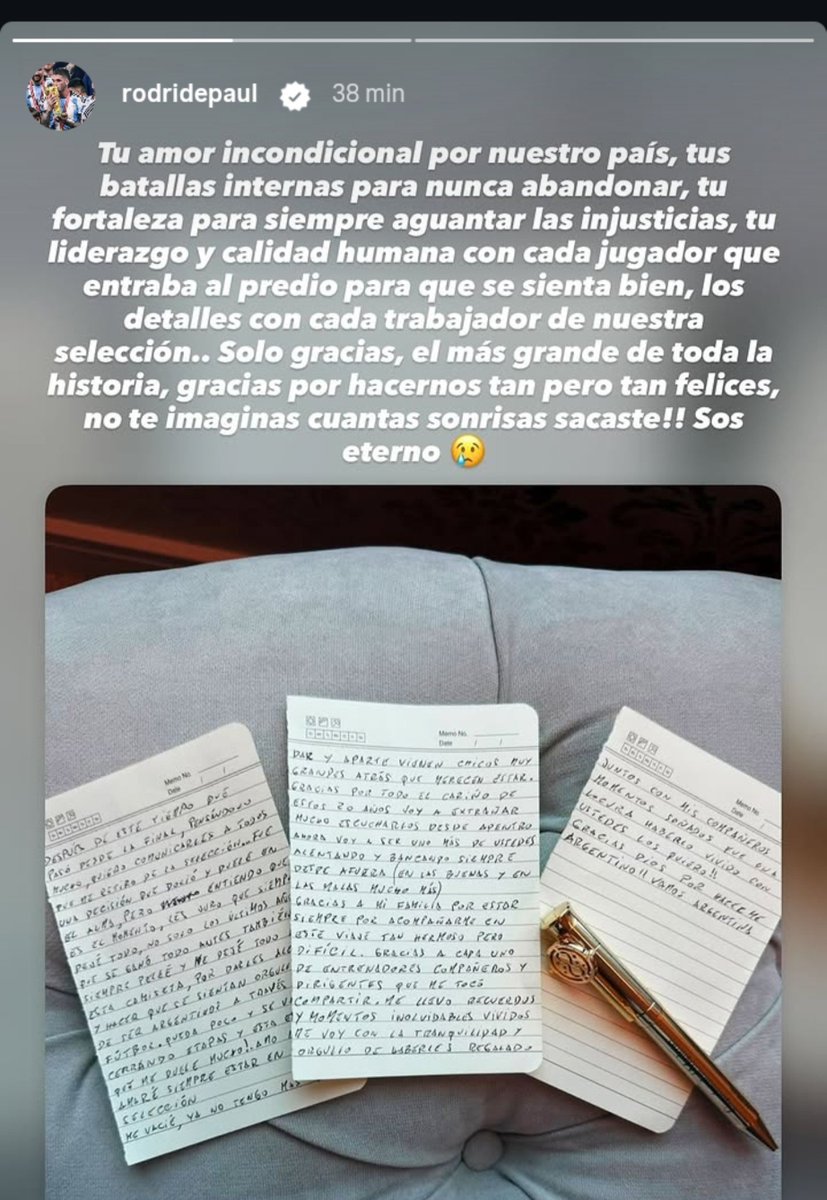 rodridepaul 38 min
Tu amor incondicional por nuestro país, tus
batallas internas para nunca abandonar, tu
fortaleza para siempre aguantar las injusticias, tu
liderazgo y calidad humana con cada jugador que
entraba al predio para que se sienta bien, los
detalles con cada trabajador de nuestra
selección.. Solo gracias, el más grande de toda la
historia, gracias por hacernos tan pero tan felices,
no te imaginas cuantas sonrisas sacaste!! Sos
eterno 😢
Memo No.
Date / /
DESPUES DE ESTE TIEMPO QUE
PASÓ DESDE LA FINAL, PENSÁNDOLO
MUCHO, QUIERO COMUNICARLES A TODOS
QUE ME RETIRO DE LA SELECCIÓN. FUE
UNA DECISIÓN QUE DOLIÓ Y DUELE EN
EL ALMA, PERO ENTIENDO QUE
ES EL MOMENTO, LES JURO QUE SIEMPRE
DEJÉ TODO, NO SOLO LOS ULTIMOS AÑOS
QUE SE GANÓ TODO ANTES TAMBIÉN
SIEMPRE PELEÉ Y ME DEJÉ TODO
ESTA CAMISETA, POR DARLES ALE
Y HACER QUE SE SIENTAN ORGULL
DE SER ARGENTINO A TRAVÉS
FÚTBOL. QUEDA POCO Y SE V
CERRANDO ETAPAS Y ESTA E
QUE ME DUELE MUCHO! AMO
AMARÉ SIEMPRE ESTAR EN
SELECCIÓN
ME VACIÉ, YA NO TENGO MÁS
Memo No.
Date / /
DAR Y APARTE VIENEN CHICOS MUY
GRANDES ATRÁS QUE MERECEN ESTAR.
GRACIAS POR TODO EL CARIÑO DE
ESTOS 20 AÑOS VOY A EXTRAÑAR
MUCHO ESCUCHARLOS DESDE ADENTRO
AHORA VOY A SER UNO MÁS DE USTEDES
ALENTANDO Y BANCANDO SIEMPRE
DESDE AFUERA (EN LAS BUENAS Y EN
LAS MALAS MUCHO MÁS)
GRACIAS A MI FAMILIA POR ESTAR
SIEMPRE POR ACOMPAÑARME EN
ESTE VIAJE TAN HERMOSO PERO
DIFÍCIL. GRACIAS A CADA UNO
DE ENTRENADORES COMPAÑEROS Y
DIRIGENTES QUE ME TOCÓ
COMPARTIR. ME LLEVO RECUERDOS
Y MOMENTOS INOLVIDABLES VIVIDOS
ME VOY CON LA TRANQUILIDAD Y
ORGULLO DE HABERLES REGALADO
Memo No.
Date / /
JUNTOS CON MIS COMPAÑEROS
MOMENTOS SOÑADOS FUE UNA
LOCURA HABERLO VIVIDO CON
USTEDES LOS QUIERO!!
GRACIAS DIOS POR HACERME
ARGENTINO!! VAMOS ARGENTINA